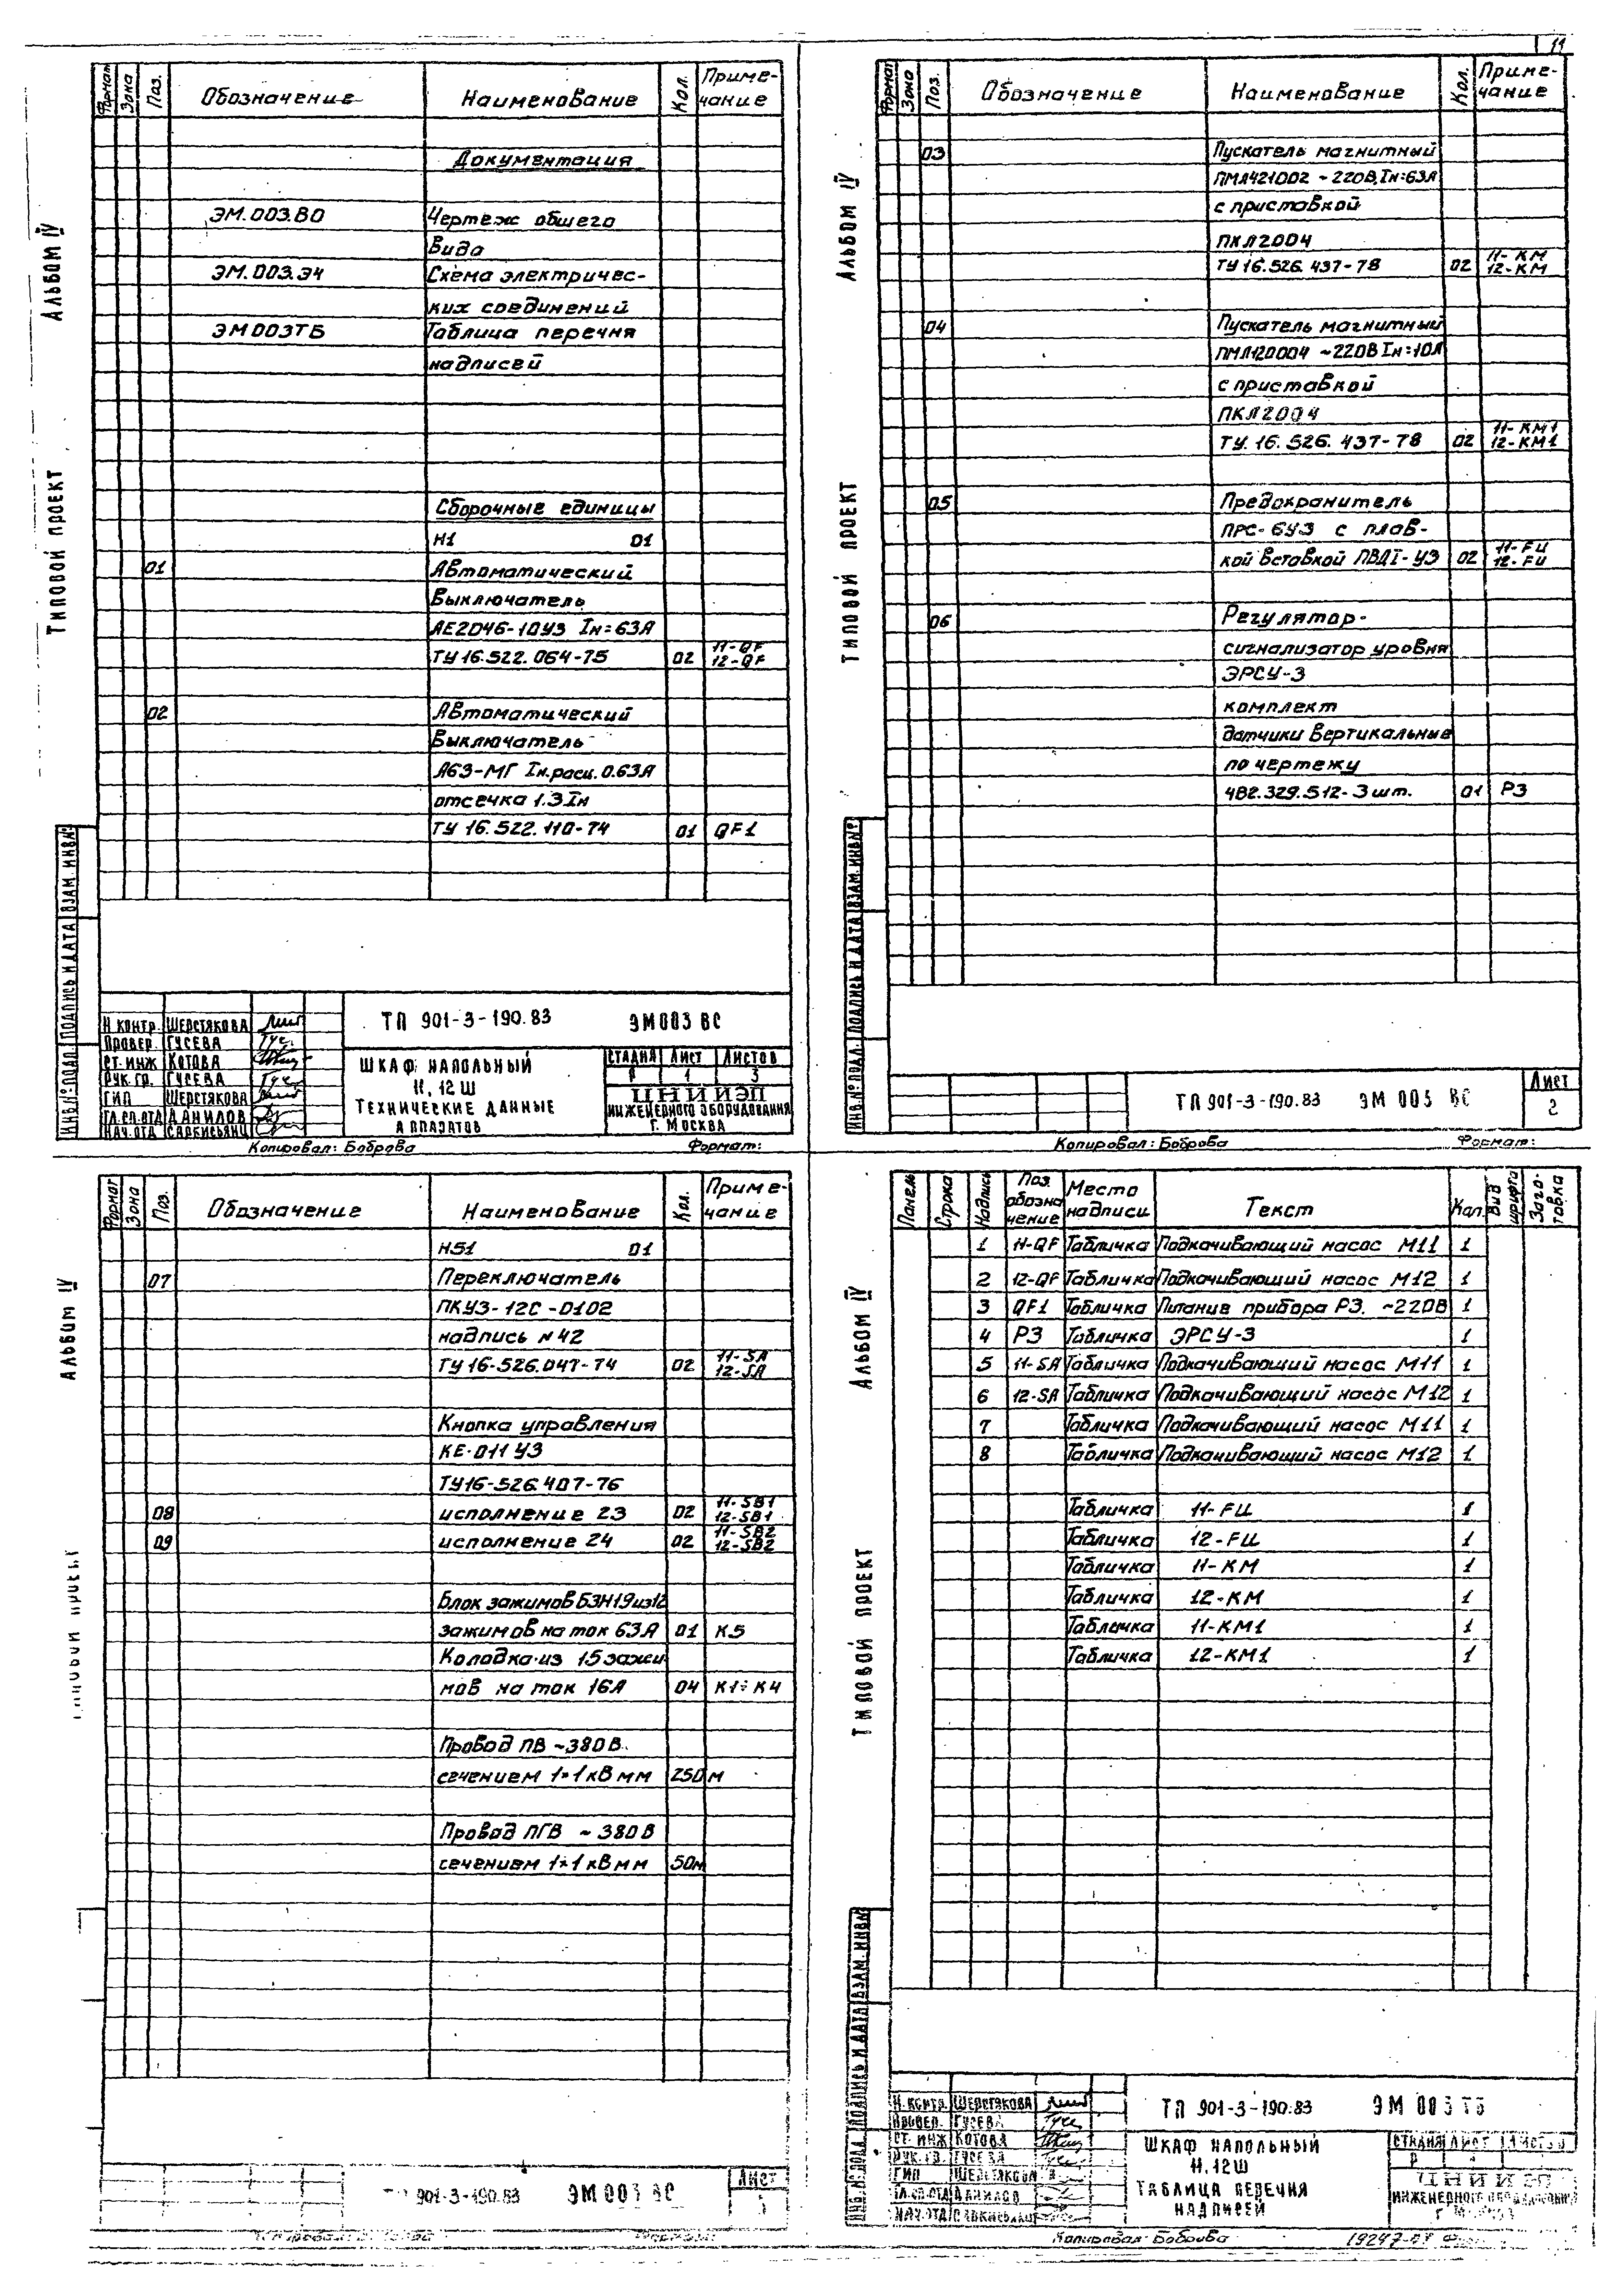 11
Альбом IV
Типовой проект
Формат Зона Поз. Обозначение Наименование Кол. Примечание
Документация
ЭМ.003.ВО Чертеж общего
вида
ЭМ.003.Э4 Схема электричес-
ких соединений
ЭМ003ТБ Таблица перечня
надписей
Сборочные единицы
Н1 01
01 Автоматический
выключатель
АЕ2046-10У3 Iн=63А
ТУ 16.522.064-75 02 11-QF 12-QF
02 Автоматический
выключатель
А63-МГ Iн.расц. 0.63А
отсечка 1.3Iн
ТУ 16.522.110-74 01 QF1
ИНВ.№ ПОДЛ. ПОДПИСЬ И ДАТА ВЗАМ. ИНВ.№
Н КОНТР. ШЕРСТЯКОВА
ПРОВЕР. ГУСЕВА
СТ. ИНЖ КОТОВА
РУК. ГР. ГУСЕВА
ГИП ШЕРСТЯКОВА
ГЛ.СП.ОТД ДАНИЛОВ
НАЧ.ОТД САРКИСЬЯНЦ
ТП 901-3-190.83 ЭМ003 ВС
ШКАФ НАПОЛЬНЫЙ
11, 12Ш
ТЕХНИЧЕСКИЕ ДАННЫЕ
АППАРАТОВ
СТАДИЯ ЛИСТ ЛИСТОВ
Р 1 3
ЦНИИЭП
ИНЖЕНЕРНОГО ОБОРУДОВАНИЯ
Г. МОСКВА
Копировал: Боброва Формат:
Альбом IV
Типовой проект
Формат Зона Поз. Обозначение Наименование Кол. Примечание
03 Пускатель магнитный
ПМЛ421002 ~220В, Iн=63А
с приставкой
ПКЛ2004
ТУ 16.526.437-78 02 11-КМ 12-КМ
04 Пускатель магнитный
ПМЛ120004 ~220В Iн=10А
с приставкой
ПКЛ2004
ТУ. 16.526.437-78 02 11-КМ1 12-КМ1
05 Предохранитель
ПРС-6У3 с плав-
кой вставкой ПВДI-У3 02 11-FU 12-FU
06 Регулятор-
сигнализатор уровня
ЭРСУ-3
комплект
датчики вертикальные
по чертежу
4В2.329.512-3шт. 01 Р3
ИНВ.№ ПОДЛ. ПОДПИСЬ И ДАТА ВЗАМ. ИНВ.№
ТП 901-3-190.83 ЭМ 003 ВС
Лист
2
Копировал: Боброва Формат:
Альбом IV
Типовой проект
Формат Зона Поз. Обозначение Наименование Кол. Примечание
Н51 01
07 Переключатель
ПКУ3-12С-0102
надпись №42
ТУ 16-526.047-74 02 11-SA 12-SA
Кнопка управления
КЕ-011 У3
ТУ16-526.407-76
08 исполнение 23 02 11-SB1 12-SB1
09 исполнение 24 02 11-SB2 12-SB2
Блок зажимов БЗН19из12
зажимов на ток 63А 01 К5
Колодка из 15 зажи
мов на ток 16А 04 К1÷К4
Провод ПВ ~380В.
сечением 1×1 кв мм 250м
Провод ПГВ ~380В
сечением 1×1 кв мм 50м
901-3-190.83 ЭМ 003 ВС
Лист
3
Альбом IV
Типовой проект
Панель Строка Надпись Поз. обозначение Место надписи Текст Кол. Вид шрифта Заготовка
1 11-QF Табличка Подкачивающий насос М11 1
2 12-QF Табличка Подкачивающий насос М12 1
3 QF1 Табличка Питание прибора Р3. ~220В 1
4 Р3 Табличка ЭРСУ-3 1
5 11-SA Табличка Подкачивающий насос М11 1
6 12-SA Табличка Подкачивающий насос М12 1
7 Табличка Подкачивающий насос М11 1
8 Табличка Подкачивающий насос М12 1
Табличка 11-FU 1
Табличка 12-FU 1
Табличка 11-КМ 1
Табличка 12-КМ 1
Табличка 11-КМ1 1
Табличка 12-КМ1 1
ИНВ.№ ПОДЛ. ПОДПИСЬ И ДАТА ВЗАМ. ИНВ.№
Н. КОНТР. ШЕРСТЯКОВА
ПРОВЕР. ГУСЕВА
СТ. ИНЖ КОТОВА
РУК. ГР. ГУСЕВА
ГИП ШЕРСТЯКОВА
ГЛ.СП.ОТД ДАНИЛОВ
НАЧ.ОТД САРКИСЬЯНЦ
ТП 901-3-190.83 ЭМ 003 ТБ
ШКАФ НАПОЛЬНЫЙ
11, 12Ш
ТАБЛИЦА ПЕРЕЧНЯ
НАДПИСЕЙ
СТАДИЯ ЛИСТ ЛИСТОВ
Р
ЦНИИЭП
ИНЖЕНЕРНОГО ОБОРУДОВАНИЯ
Г. МОСКВА
Копировал: Боброва